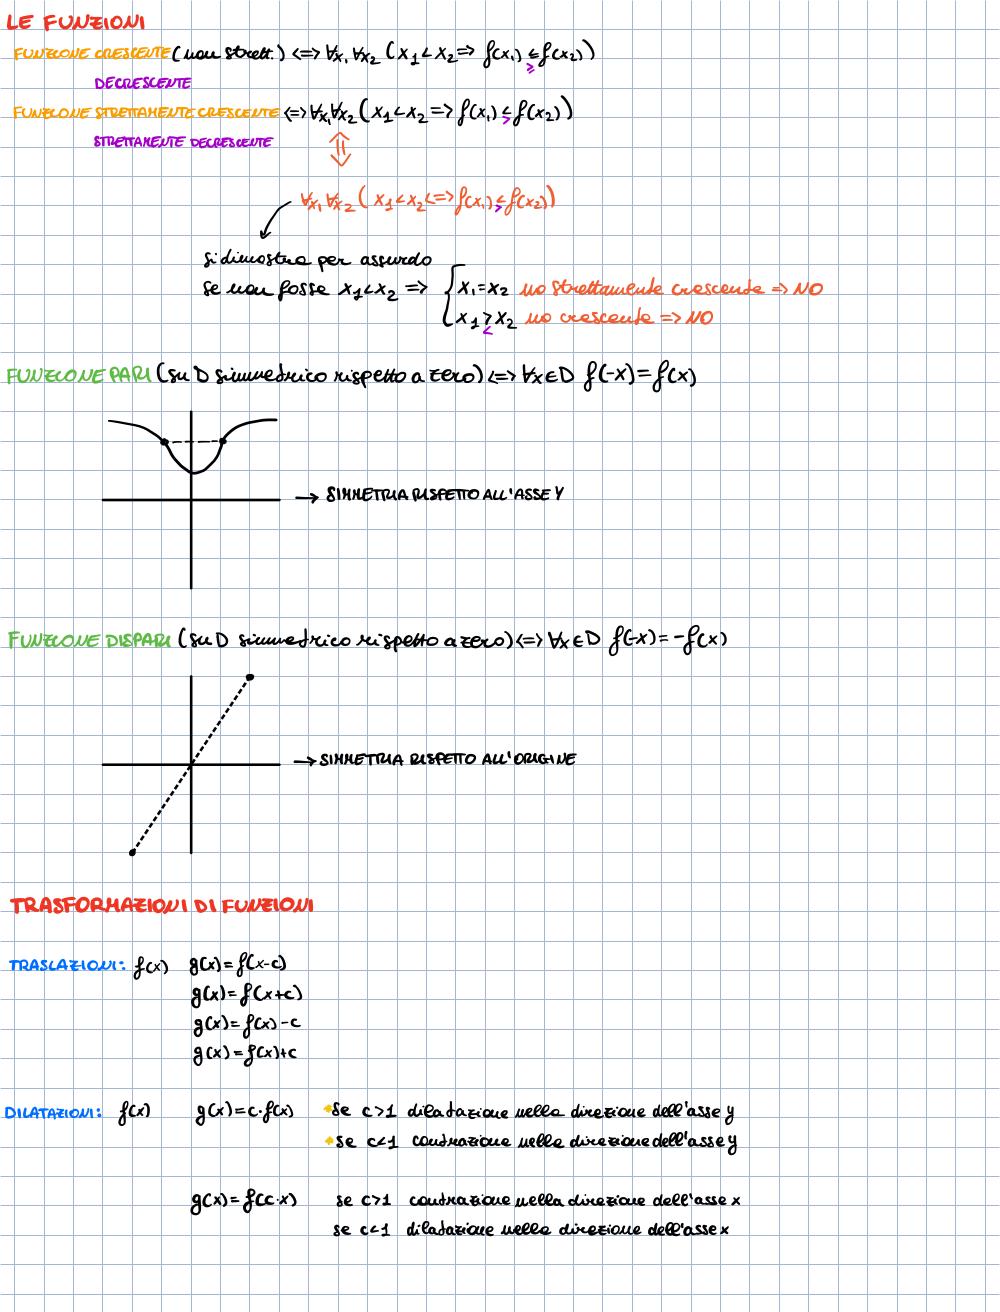 LE FUNZIONI
FUNZIONE CRESCENTE (non strett.) <=> ∀x₁ ∀x₂ (x₁<x₂ => f(x₁) ≤ f(x₂))
≥
DECRESCENTE
FUNZIONE STRETTAMENTE CRESCENTE <=> ∀x₁ ∀x₂ (x₁<x₂ => f(x₁) < f(x₂))
>
STRETTAMENTE DECRESCENTE
⇕
∀x₁ ∀x₂ (x₁<x₂ <=> f(x₁) < f(x₂))
>
si dimostra per assurdo
se non fosse x₁<x₂ => { x₁=x₂ no strettamente crescente => NO
x₁>x₂ no crescente => NO
<
FUNZIONE PARI (su D simmetrico rispetto a zero) <=> ∀x∈D f(-x)=f(x)
→ SIMMETRIA RISPETTO ALL'ASSE Y
FUNZIONE DISPARI (su D simmetrico rispetto a zero) <=> ∀x∈D f(-x)=-f(x)
→ SIMMETRIA RISPETTO ALL'ORIGINE
TRASFORMAZIONI DI FUNZIONI
TRASLAZIONI: f(x) g(x)=f(x-c)
g(x)=f(x+c)
g(x)=f(x)-c
g(x)=f(x)+c
DILATAZIONI: f(x) g(x)=c·f(x) se c>1 dilatazione nella direzione dell'asse y
se c<1 contrazione nella direzione dell'asse y
g(x)=f(c·x) se c>1 contrazione nella direzione dell'asse x
se c<1 dilatazione nella direzione dell'asse x